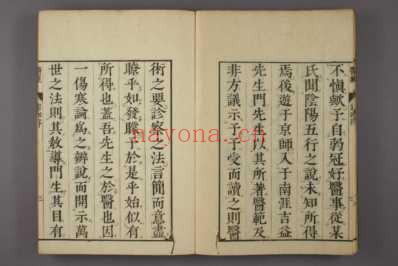 不愼歟予自弱冠好醫事從某
氏聞陰陽五行之說未知所得
焉後遊于京師入于南涯吉益
先生門先生以其所著醫範及
非方議示予予受而讀之則醫
術之要診察之法言簡而意盡
瞭乎如發矇于於是乎始似有
所得也蓋吾先生之於醫也因
一傷寒論爲之辨說而開示萬
世之法則其敎導門生其目有
nayona.cn